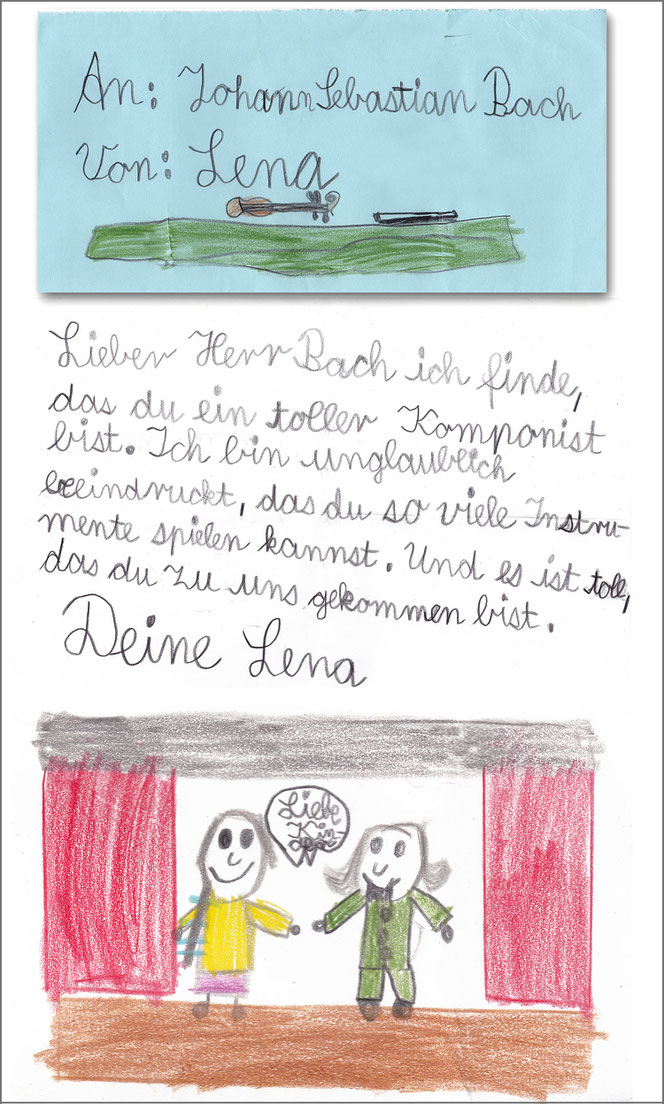 An: Johann Sebastian Bach
Von: Lena
Lieber Herr Bach ich finde,
das du ein toller Komponist
bist. Ich bin unglaublich
beeindruckt, das du so viele Instru-
mente spielen kannst. Und es ist toll,
das du zu uns gekommen bist.
Deine Lena
Liebe
Kin-
der